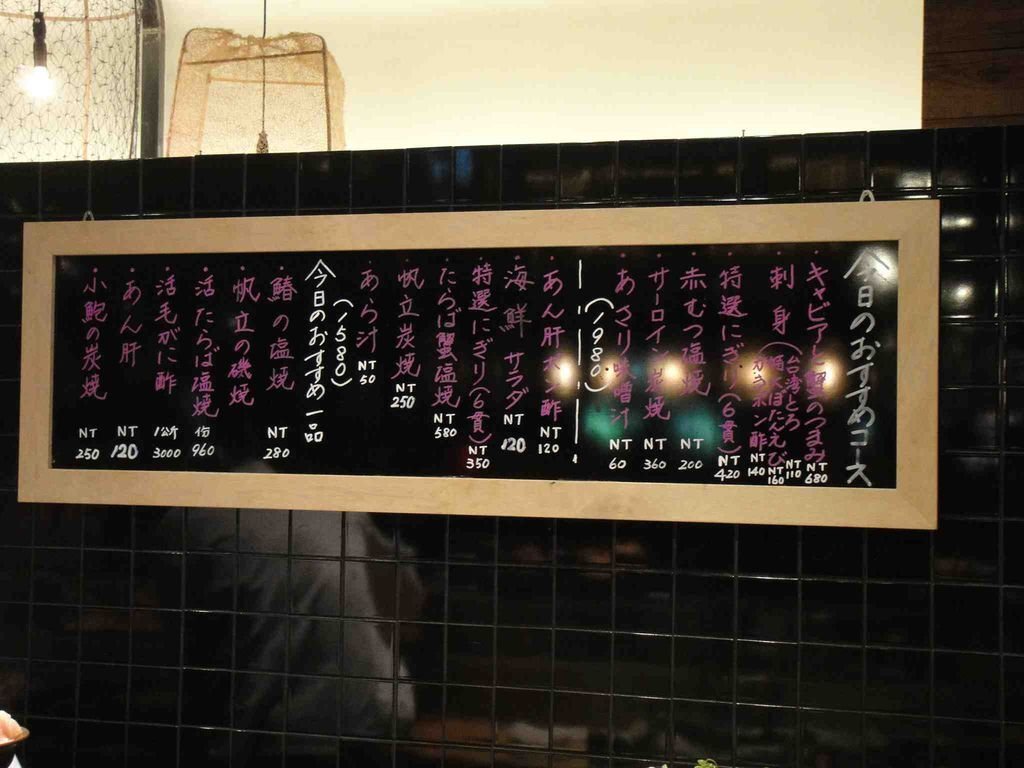 今日のおすすめコース
・キャビアと蟹のつまみ NT 680
・刺身(台湾とろ NT 110
特大ぼたんえび NT 160
ポン酢 NT 140
・特選にぎり(6貫) NT 420
・赤むつ塩焼 NT 200
・サーロイン炭焼 NT 360
・あさり味噌汁 NT 60
(1980)
・あん肝ポン酢 NT 120
・海鮮サラダ NT 120
・特選にぎり(6貫) NT 350
・たらば蟹塩焼 NT 580
・帆立炭焼 NT 250
・あら汁 NT 50
(1580)
今日のおすすめ一品
・鰆の塩焼 NT 280
・帆立の磯焼
・活たらば塩焼 960
・活毛がに酢 3000
・あん肝 NT 120
・小鮑の炭焼 NT 250